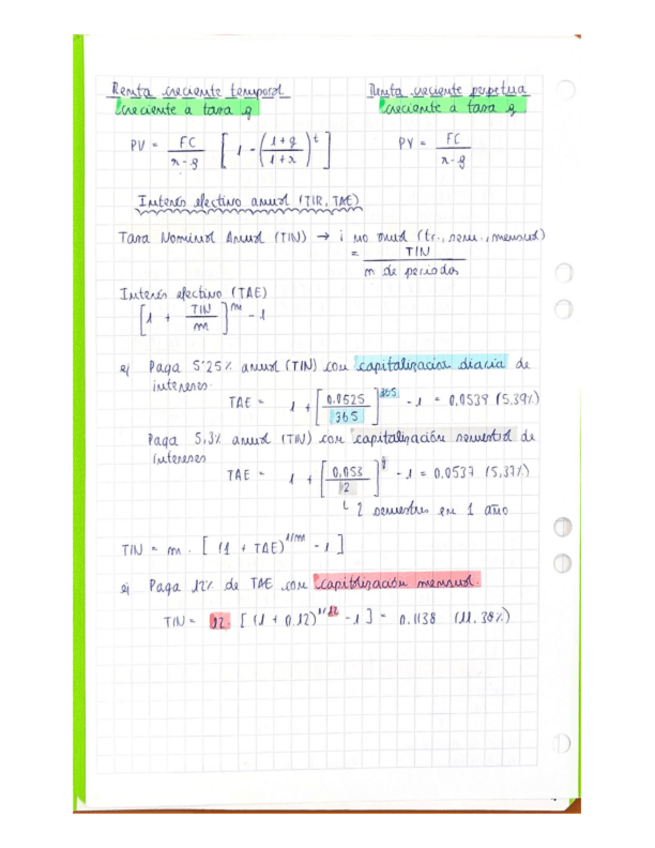 Renta creciente temporal
creciente a tasa g
PV = FC / r-g [ 1 - ( 1+g / 1+r )^t ]
Renta creciente perpetua
creciente a tasa g
PV = FC / r-g
Interés efectivo anual (TIR, TAE)
Tasa Nominal Anual (TIN) → i no anual (tr., sem., mensual)
= TIN / m de periodos
Interés efectivo (TAE)
[ 1 + TIN / m ]^m - 1
ej Paga 5'25% anual (TIN) con capitalización diaria de
intereses.
TAE = 1 + [ 0.0525 / 365 ]^365 - 1 = 0.0539 (5.39%)
Paga 5,3% anual (TIN) con capitalización semestral de
intereses
TAE = 1 + [ 0,053 / 2 ]^2 - 1 = 0.0537 (5,37%)
↳ 2 semestres en 1 año
TIN = m . [ (1 + TAE)^1/m - 1 ]
ej Paga 12% de TAE con capitalización mensual.
TIN = 12. [ (1 + 0.12)^1/12 - 1 ] = 0.1138 (11.38%)